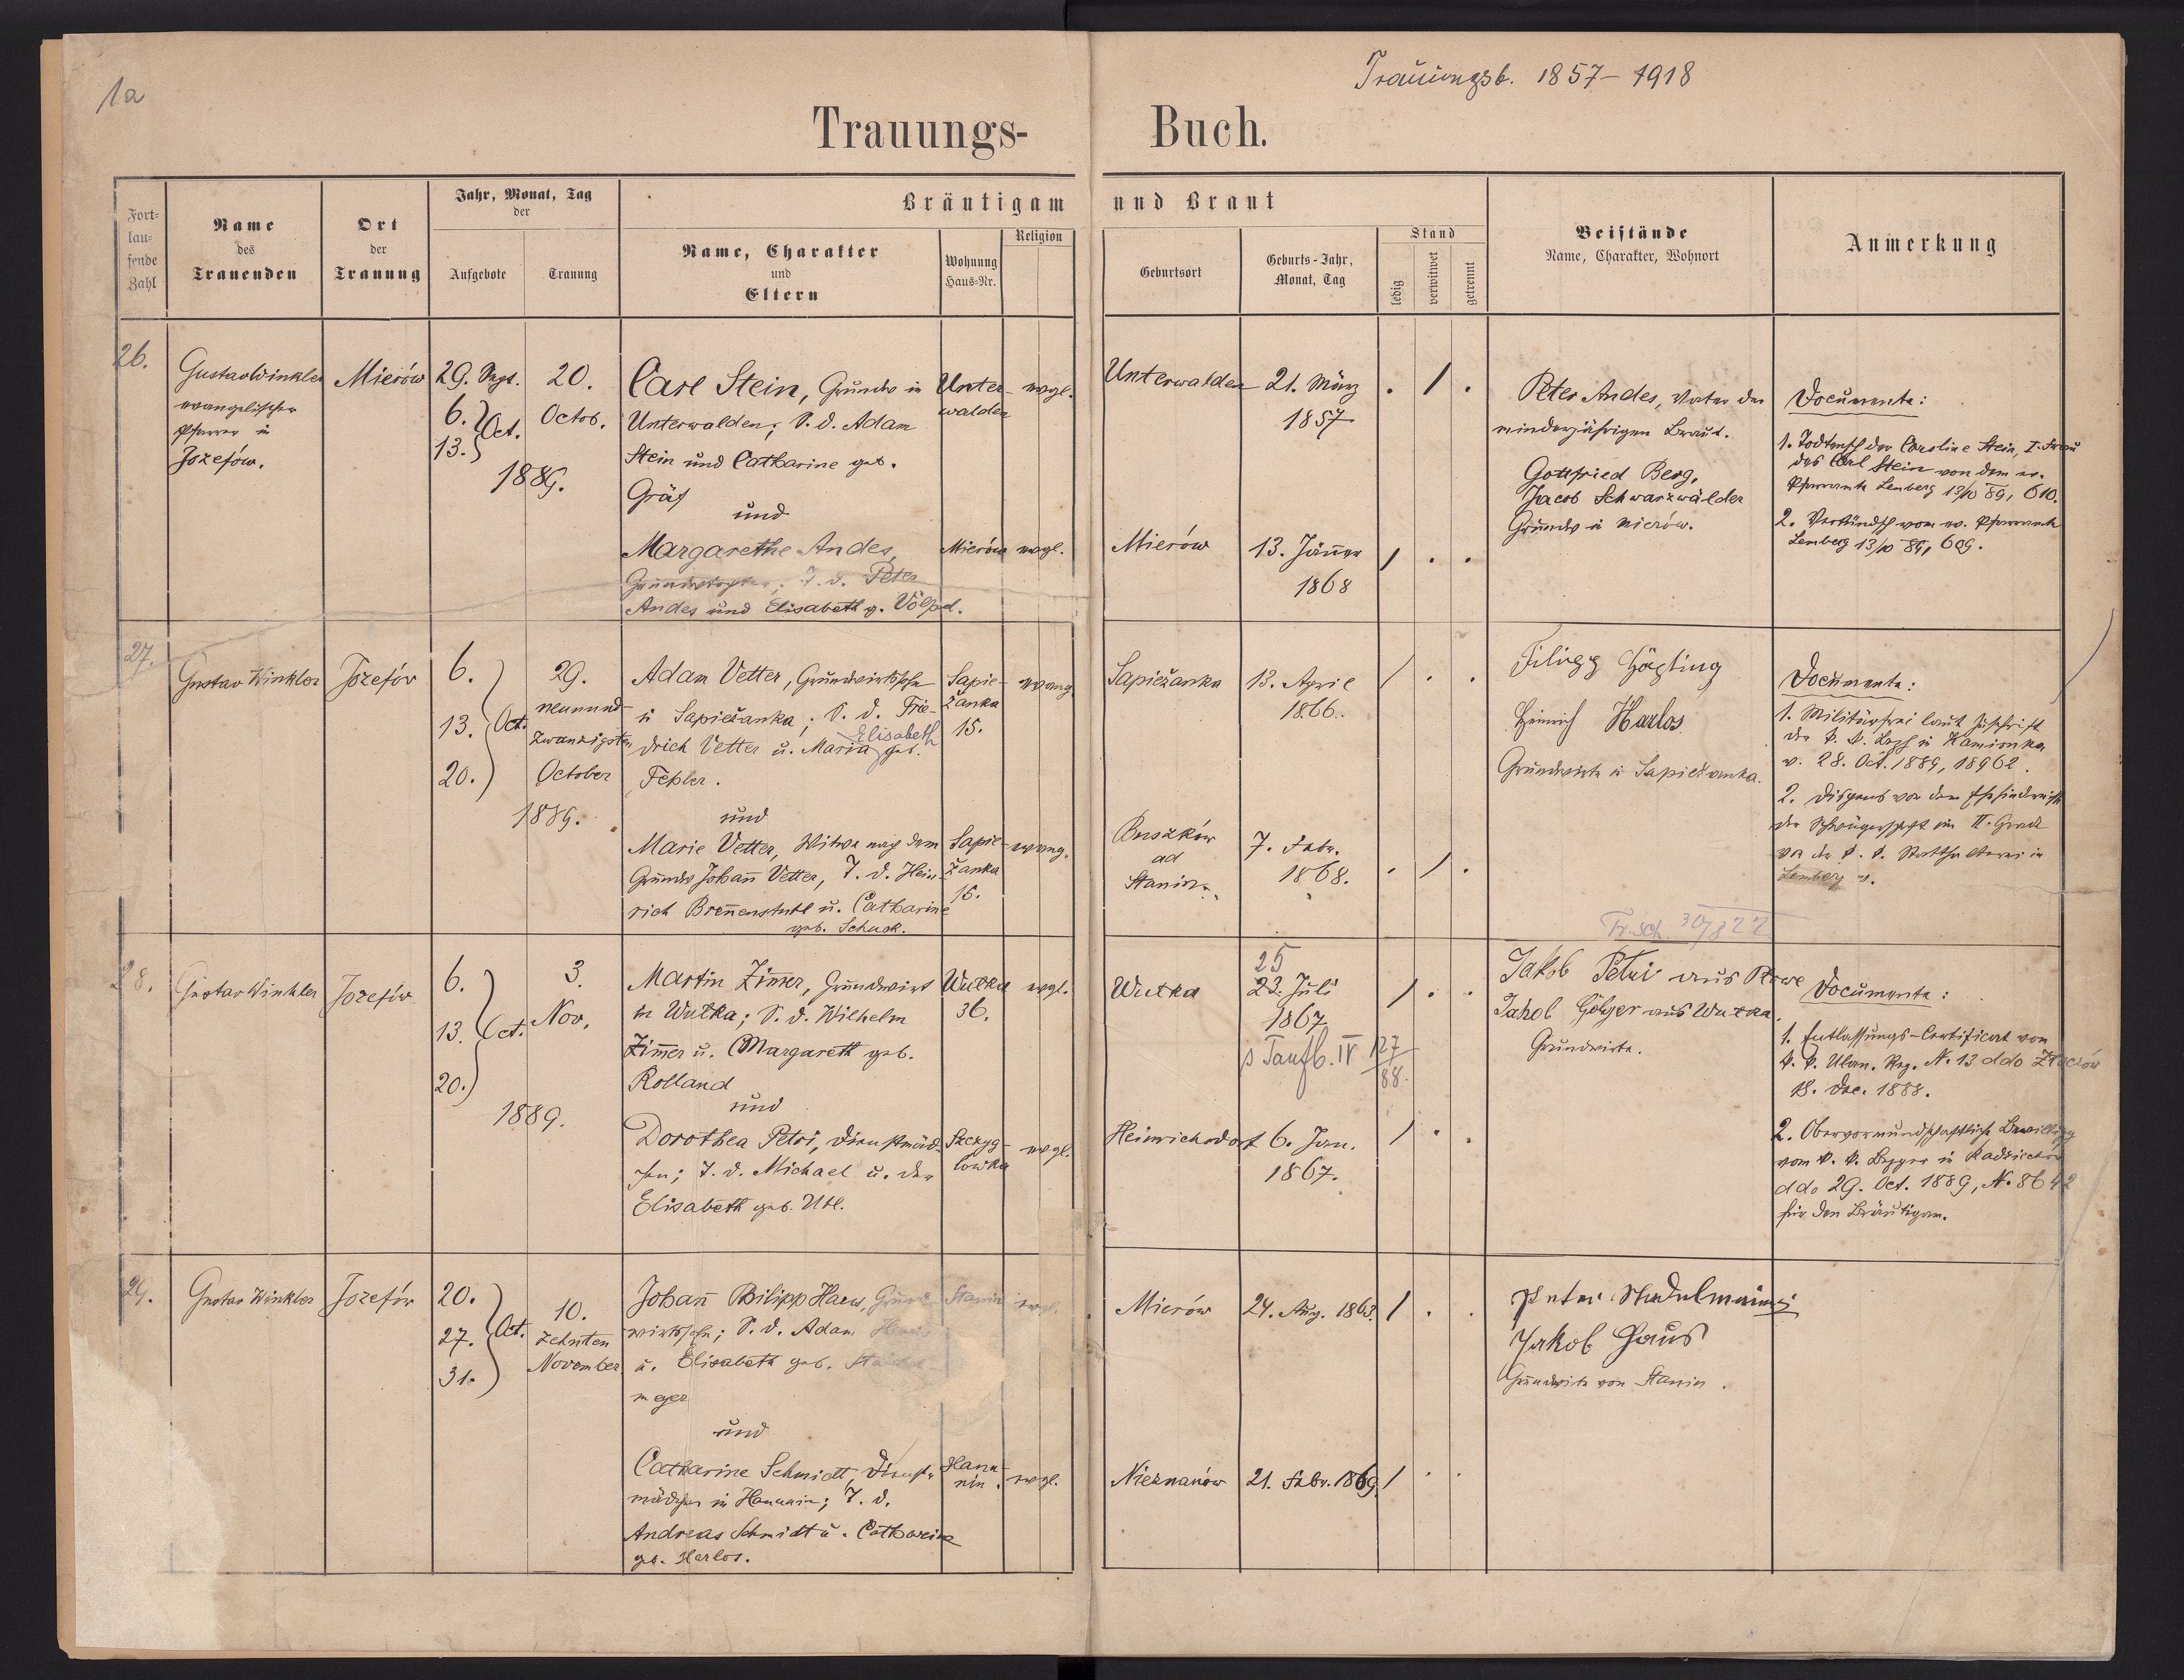 1a
Trauungsb. 1857-1918
Trauungs- Buch.
Fort-
lau-
fende
Zahl
Name
des
Trauenden
Ort
der
Trauung
Jahr, Monat, Tag
der
Aufgebote
Trauung
Bräutigam und Braut
Name, Charakter
und
Eltern
Wohnung
Haus-Nr.
Religion
Geburtsort
Geburts-Jahr,
Monat, Tag
Stand
ledig
verwitwet
getrennt
Beistände
Name, Charakter, Wohnort
Anmerkung
26.
Gustav Winkler
evangelischer
Pfarrer in
Jozefów.
Mierów
29. Sept.
6. } Oct.
13.
20.
Octob.
1889.
Carl Stein, Grundw in
Unterwalden; S. d. Adam
Stein und Catharine geb.
Gräf
und
Margarethe Andes,
T. d. Peter
Andes und Elisabeth g. Völpel.
Unter-
walden
evgl.
Mierów
evgl.
Unterwalden
21. März
1857
. / .
Mierów
13. Jäner
1868
/ . .
Peter Andes, Vater der
minderjährigen Braut.
Gottfried Berg,
Jacob Schwarzwälder
Grundw in Mierów.
Documente:
1. Todtensch der Caroline Stein, I. Frau
des Carl Stein von dem ev.
Pfarramte Lemberg 13/10 89, 610.
2. Verkündsch vom ev. Pfarramte
Lemberg 13/10 89, 609.
27.
Gustav Winkler
Józefów
6.
13. } Oct.
20.
29.
neunund-
zwanzigsten
October
1889.
Adam Vetter, Grundwirtssohn
in Sapieżanka; S. d. Frie-
drich Vetter u. Maria Elisabeth geb.
und
Marie Vetter, Witwe nach dem
Grundw Johann Vetter, T. d. Hein-
rich Brenenstuhl u. Catharine
geb. Schuck.
Sapie-
żanka
15.
evang.
Sapie-
żanka
15.
evang.
Sapieżanka
13. April
1866.
/ . .
ad
Stanin
7. Febr.
1868.
. / .
Filipp Hägling
Heinrich Harlos
Grundwirte in Sapieżanka.
Documente:
1. Militärfrei laut Zuschrift
der k. k. Bezh in Kamionka
v. 28. Oct. 1889, 18962.
2. Dispens von dem Ehehinderniss
der Schwägerschaft im II. Grade
von der k. k. Statthalterei in
Lemberg v.
28.
Gustav Winkler
Jozefów
6.
13. } Oct.
20.
3.
Nov.
1889.
Martin Zimer, Grundwirt
in Wutka; S. d. Wilhelm
Zimer u. Margareth geb.
Rolland
und
Dorothea Petri, Dienstmäd-
chen; T. d. Michael u. der
Elisabeth geb. Utl.
Wutka
36.
evgl.
Szczyg-
łówka
evgl.
Wutka
25
23. Juli
1867
s Taufb. IV 127/88.
/ . .
Heinrichsdorf
6. Jan.
1867.
/ . .
Jakob Petri aus
Jakob Gölger aus Wutka.
Grundwirte.
Documente:
1. Entlassungs-Certificat vom
k. k. Ulan. Reg. N. 13 ddo Złoczów
18. Dec. 1888.
2. Obervormundschaftliche Bewilligg
vom k. k. Bezger in Radziechów
ddo 29. Oct. 1889, N. 8642
für den Bräutigam.
29.
Gustav Winkler
Jozefów
20.
27. } Oct.
31.
10.
zehnten
November
Johann Philipp Haus, Grund-
wirtssohn; S. d. Adam
u. Elisabeth geb.
meyer
und
Catharine Schmidt, Dienst-
mädchen in Hannin; T. d.
Andreas Schmidt u. Catharine
geb. Harlos.
Stanin
evgl.
Hann-
nin.
evgl.
Mierów
24. Aug. 1863.
/ . .
Nieznanów
21. Febr. 1869.
/ . .
Peter Stadelmeier
Jakob Haus
Grundwirte von Stanin.